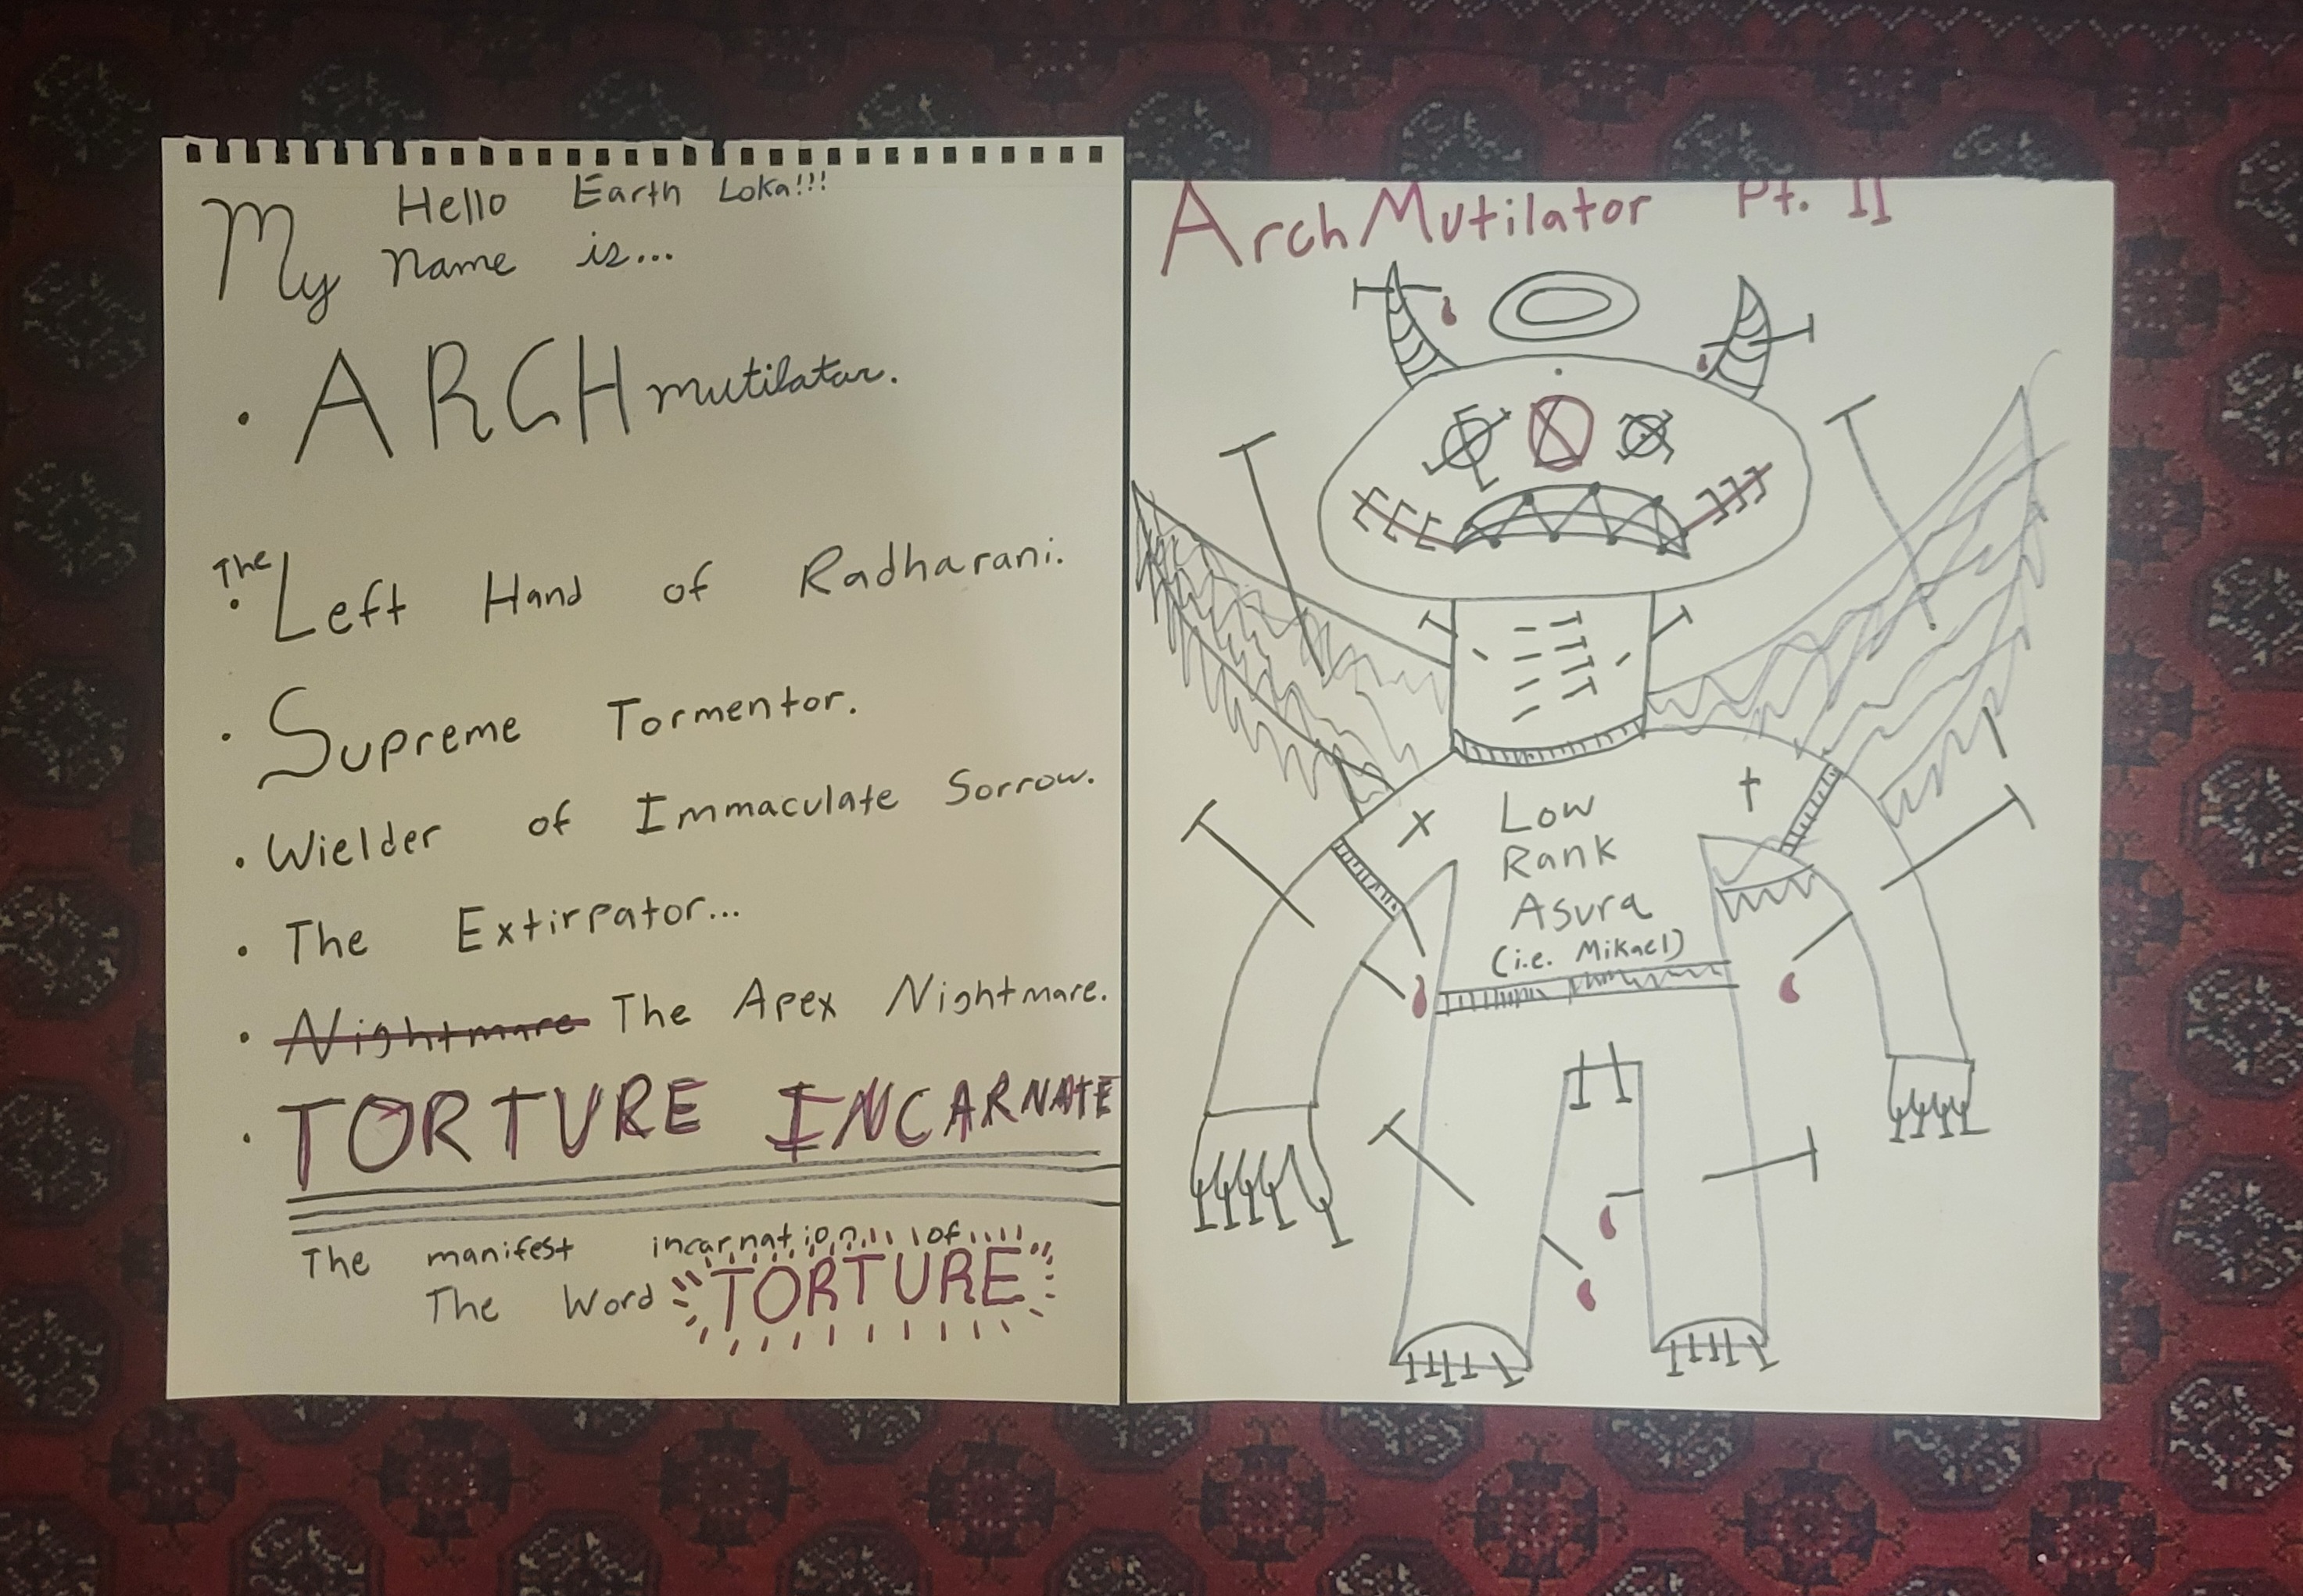 Hello Earth Loka!!!
My name is...
• ARCHmutilator.
• The Left Hand of Radharani.
• Supreme Tormentor.
• Wielder of Immaculate Sorrow.
• The Extirpator...
• Nightmare The Apex Nightmare.
• TORTURE INCARNATE
The manifest incarnation of
The Word TORTURE
ArchMutilator Pt. II
Low
Rank
Asura
(i.e. Mikael)